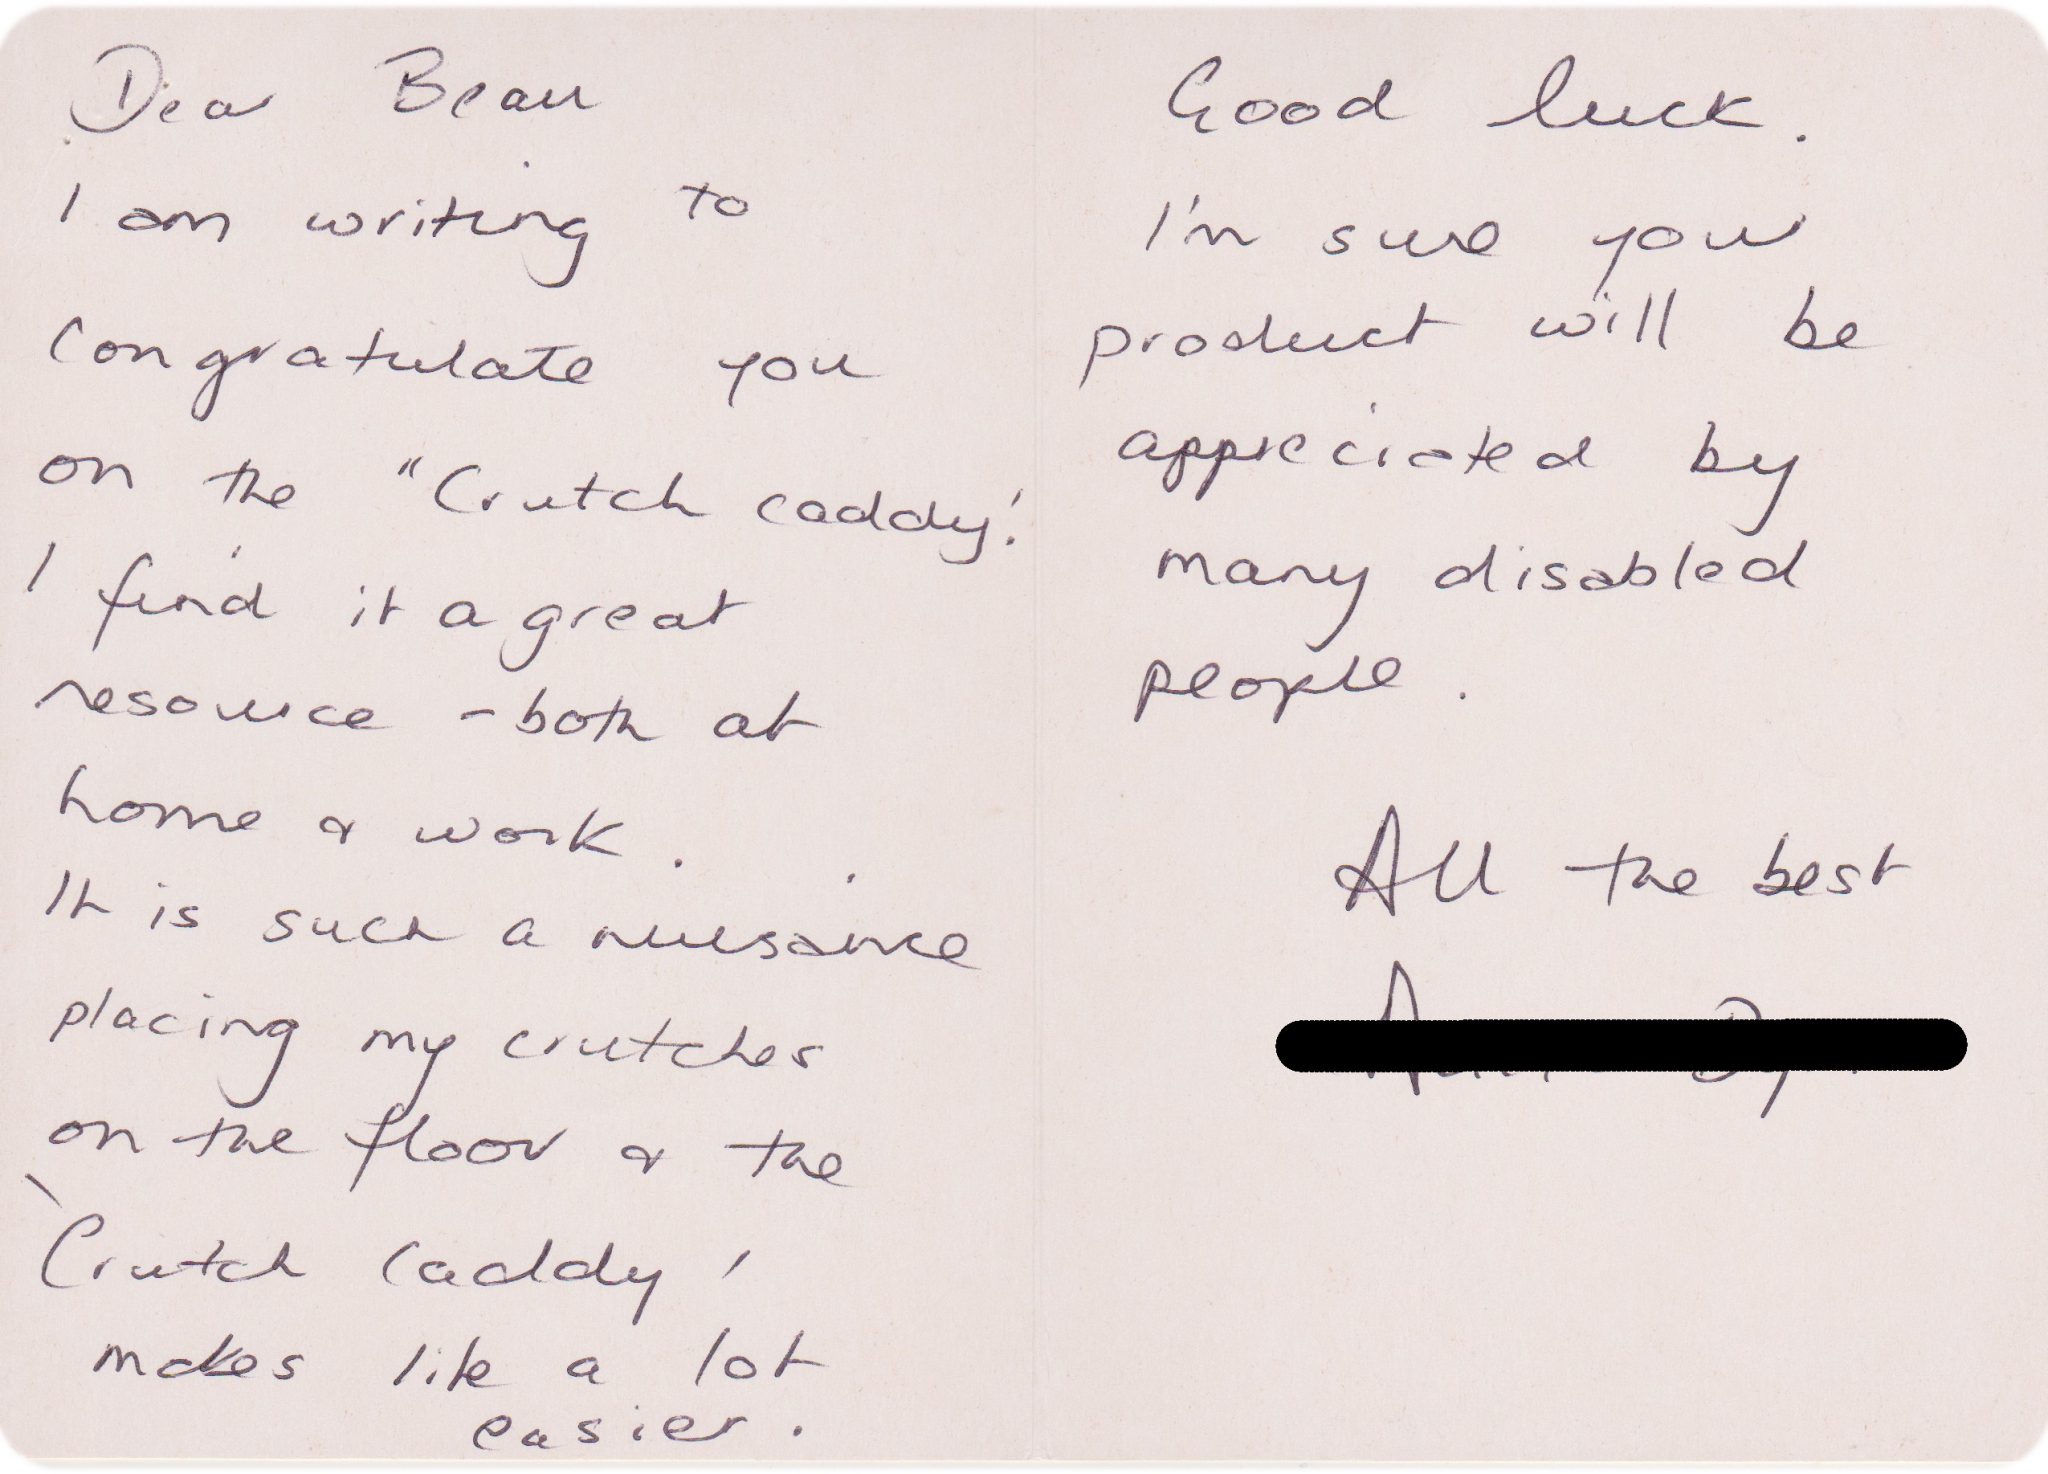 Dear Beau
I am writing to
congratulate you
on the "Crutch caddy'.
I find it a great
resource - both at
home & work.
It is such a nuisance
placing my crutches
on the floor & the
'Crutch Caddy'
makes life a lot
easier.
Good luck.
I'm sure your
product will be
appreciated by
many disabled
people.
All the best